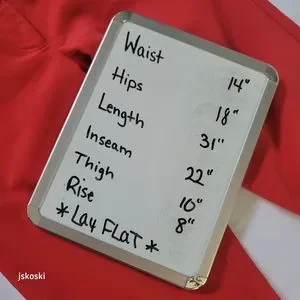 Waist 14"
Hips 18"
Length 31"
Inseam 22"
Thigh 10"
Rise 8"
*Lay FLaT*
jskoski